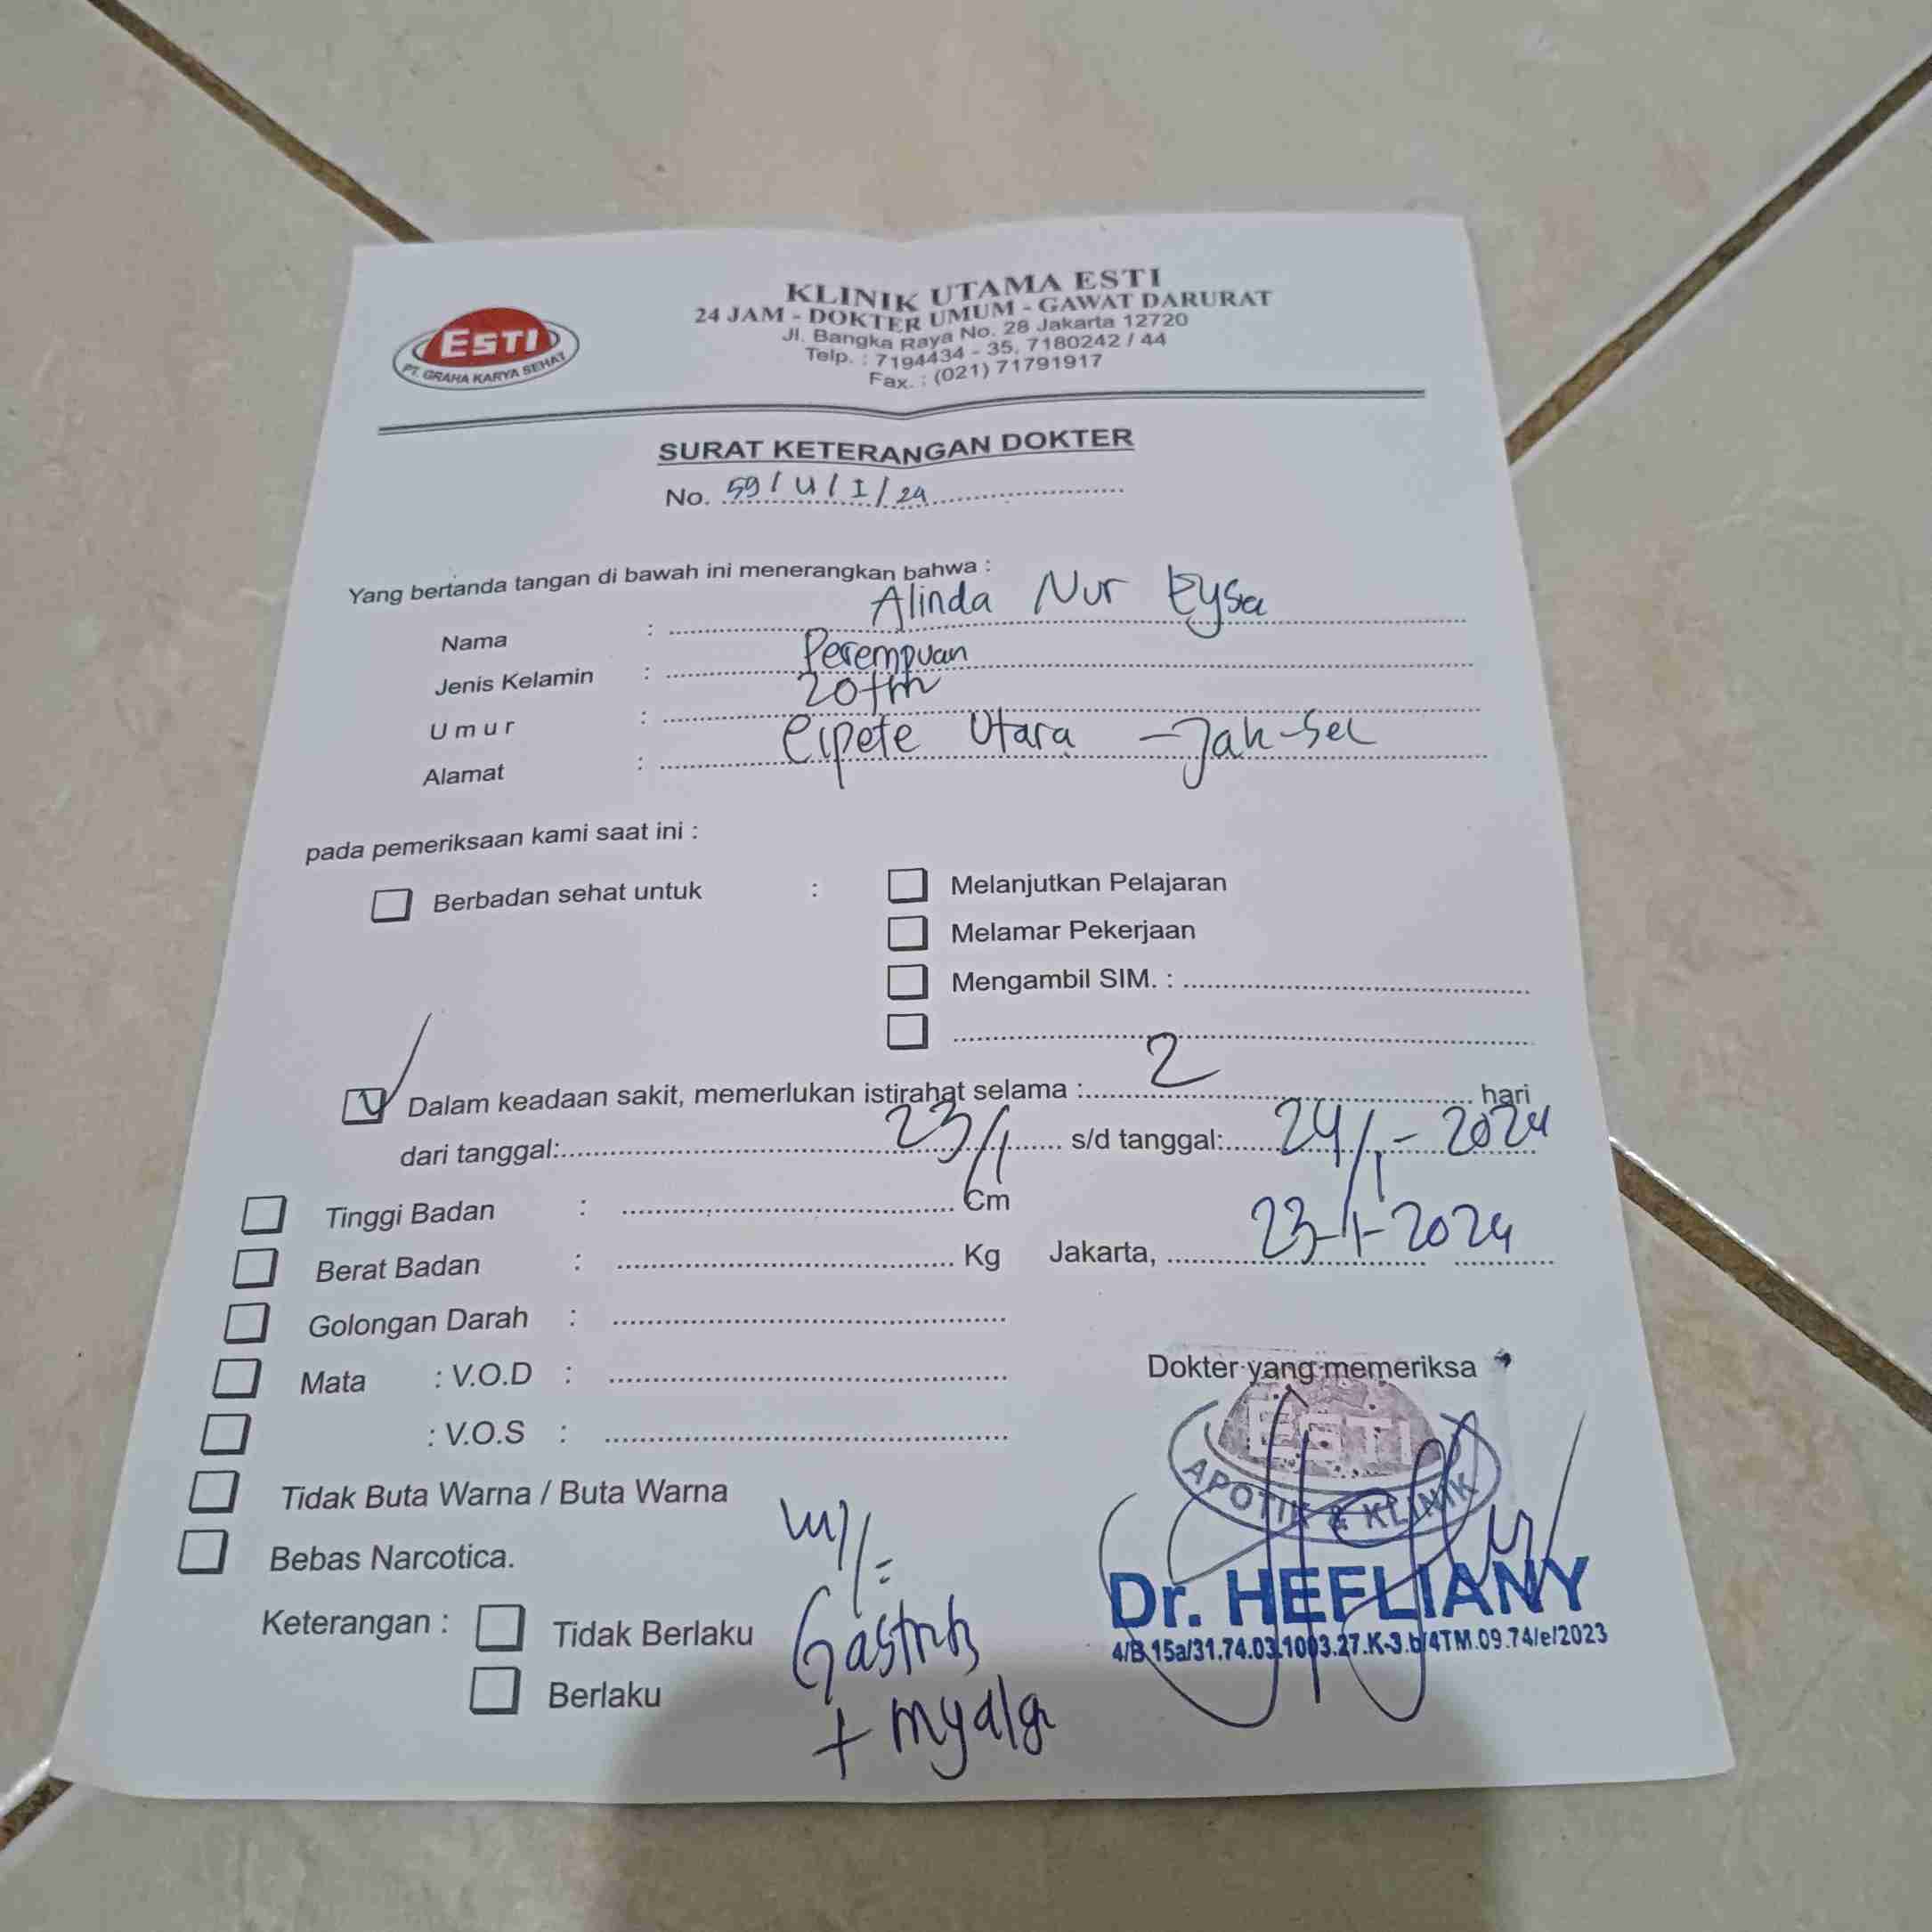 ESTI
PT. GRAHA KARYA SEHAT
KLINIK UTAMA ESTI
24 JAM - DOKTER UMUM - GAWAT DARURAT
Jl. Bangka Raya No. 28 Jakarta 12720
Telp. : 7194434 - 35, 7180242 / 44
Fax. : (021) 71791917
SURAT KETERANGAN DOKTER
No. 59 / U / I / 24
Yang bertanda tangan di bawah ini menerangkan bahwa :
Nama : Alinda Nur Eysa
Jenis Kelamin : Perempuan
Umur : 20 th
Alamat : Cipete Utara - Jak-Sel
pada pemeriksaan kami saat ini :
Berbadan sehat untuk : Melanjutkan Pelajaran
Melamar Pekerjaan
Mengambil SIM. :
Dalam keadaan sakit, memerlukan istirahat selama : 2 hari
dari tanggal: 23/1 s/d tanggal: 24/1 - 2024
Tinggi Badan : Cm
Berat Badan : Kg Jakarta, 23-1-2024
Golongan Darah :
Mata : V.O.D :
: V.O.S :
Tidak Buta Warna / Buta Warna
Bebas Narcotica.
Keterangan : Tidak Berlaku
Berlaku
Gastritis
+ myalgi
Dokter yang memeriksa
ESTI
APOTIK & KLINIK
Dr. HEFLIANY
4/B.15a/31.74.03.1003.27.K-3.b/4TM.09.74/e/2023